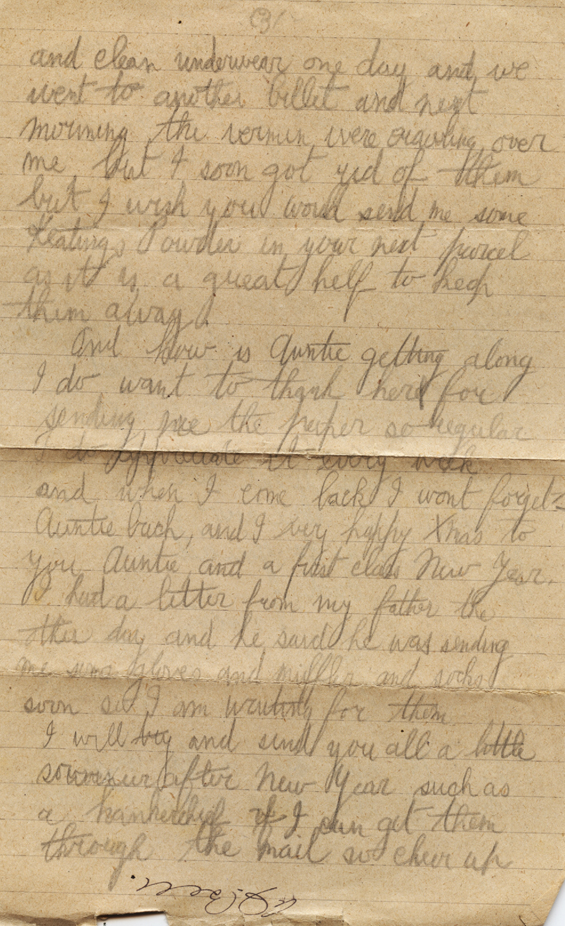 (3)
and clean underwear one day and we
went to another billet and next
morning the vermin were crawling over
me but I soon got rid of them
but I wish you would send me some
Keatings Powder in your next parcel
as it is a great help to keep
them away.
And how is Auntie getting along
I do want to thank her for
sending me the paper so regular
I do appreciate it every week
and when I come back I wont forget
Auntie bach, and I very happy Xmas to
you Auntie and a first class New Year.
I had a letter from my father the
ther day and he said he was sending
me some gloves and muffler and socks
soon so I am waiting for them
I will try and send you all a little
souvenir after New Year such as
a hankerchief if I can get them
through the mail so cheer up